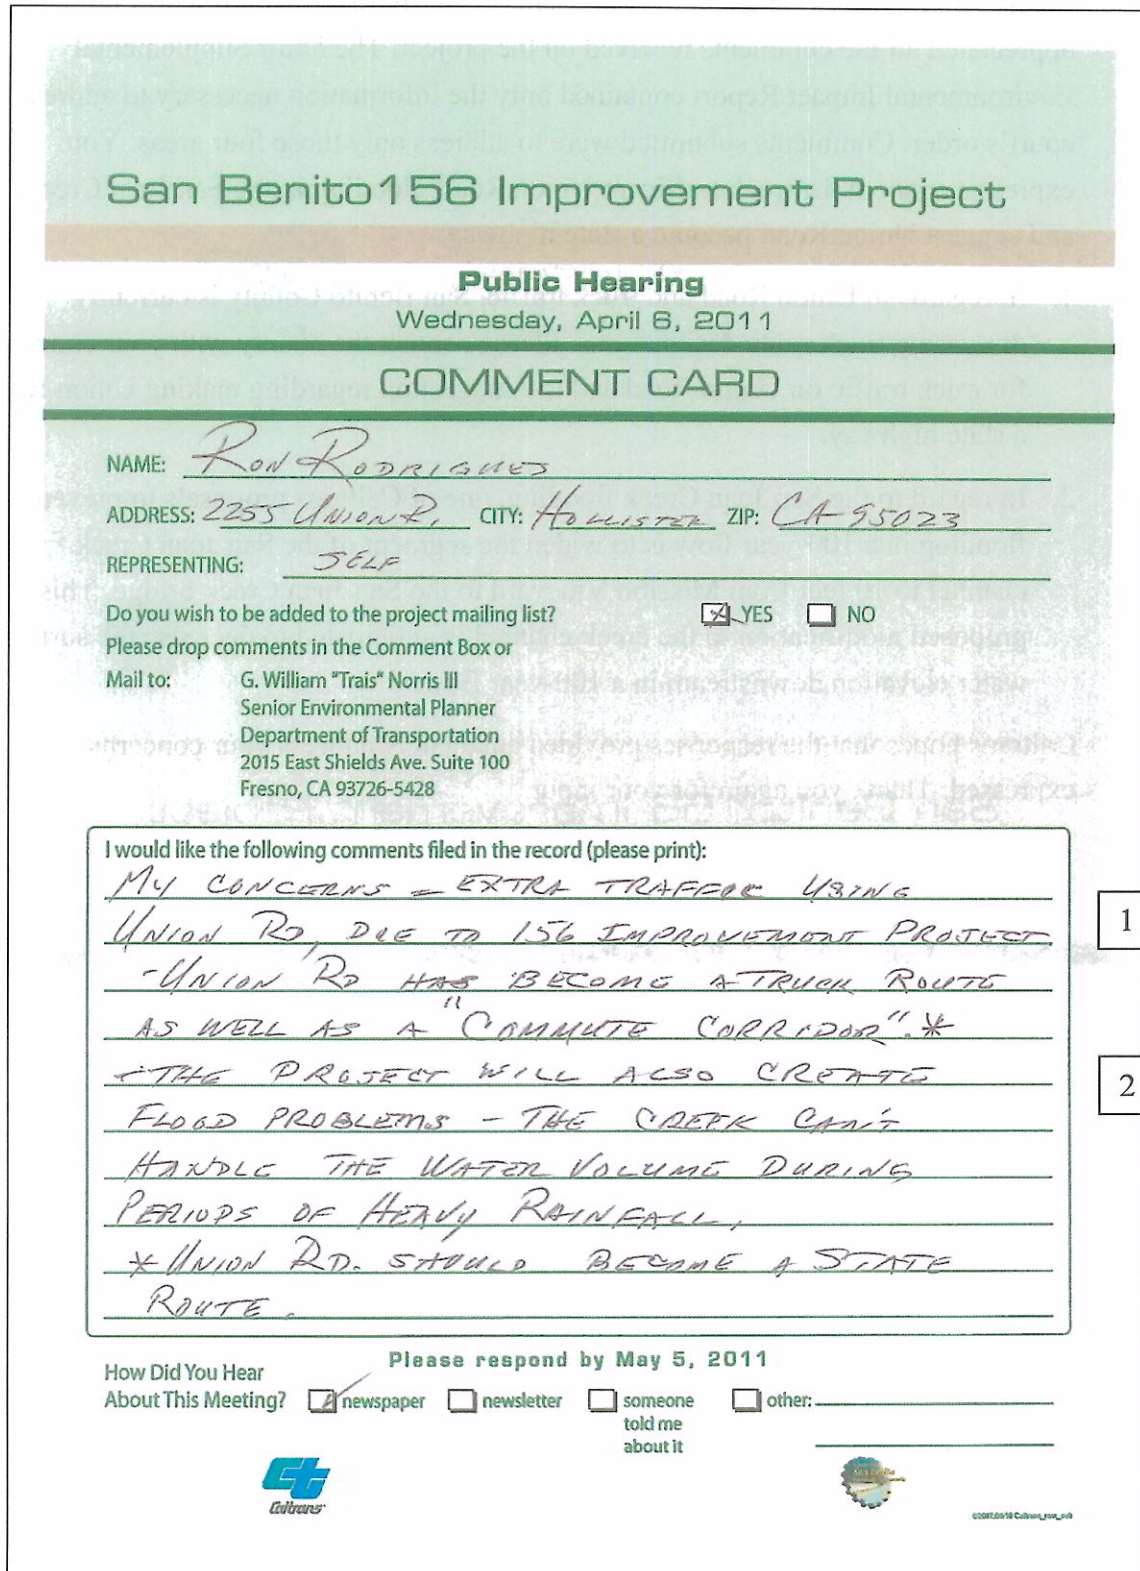 San Benito 156 Improvement Project
Public Hearing
Wednesday, April 6, 2011
COMMENT CARD
NAME: RON RODRIGUES
ADDRESS: 2255 UNION R. CITY: HOLLISTER ZIP: CA 95023
REPRESENTING: SELF
Do you wish to be added to the project mailing list? YES NO
Please drop comments in the Comment Box or
Mail to: G. William "Trais" Norris III
Senior Environmental Planner
Department of Transportation
2015 East Shields Ave. Suite 100
Fresno, CA 93726-5428
I would like the following comments filed in the record (please print):
MY CONCERNS - EXTRA TRAFFIC USING
UNION RD, DUE TO 156 IMPROVEMENT PROJECT 1
- UNION RD HAS BECOME A TRUCK ROUTE
AS WELL AS A "COMMUTE CORRIDOR". *
- THE PROJECT WILL ALSO CREATE 2
FLOOD PROBLEMS - THE CREEK CAN'T
HANDLE THE WATER VOLUME DURING
PERIODS OF HEAVY RAINFALL,
* UNION RD. SHOULD BECOME A STATE
ROUTE.
Please respond by May 5, 2011
How Did You Hear
About This Meeting? newspaper newsletter someone other:
told me
about it
Caltrans